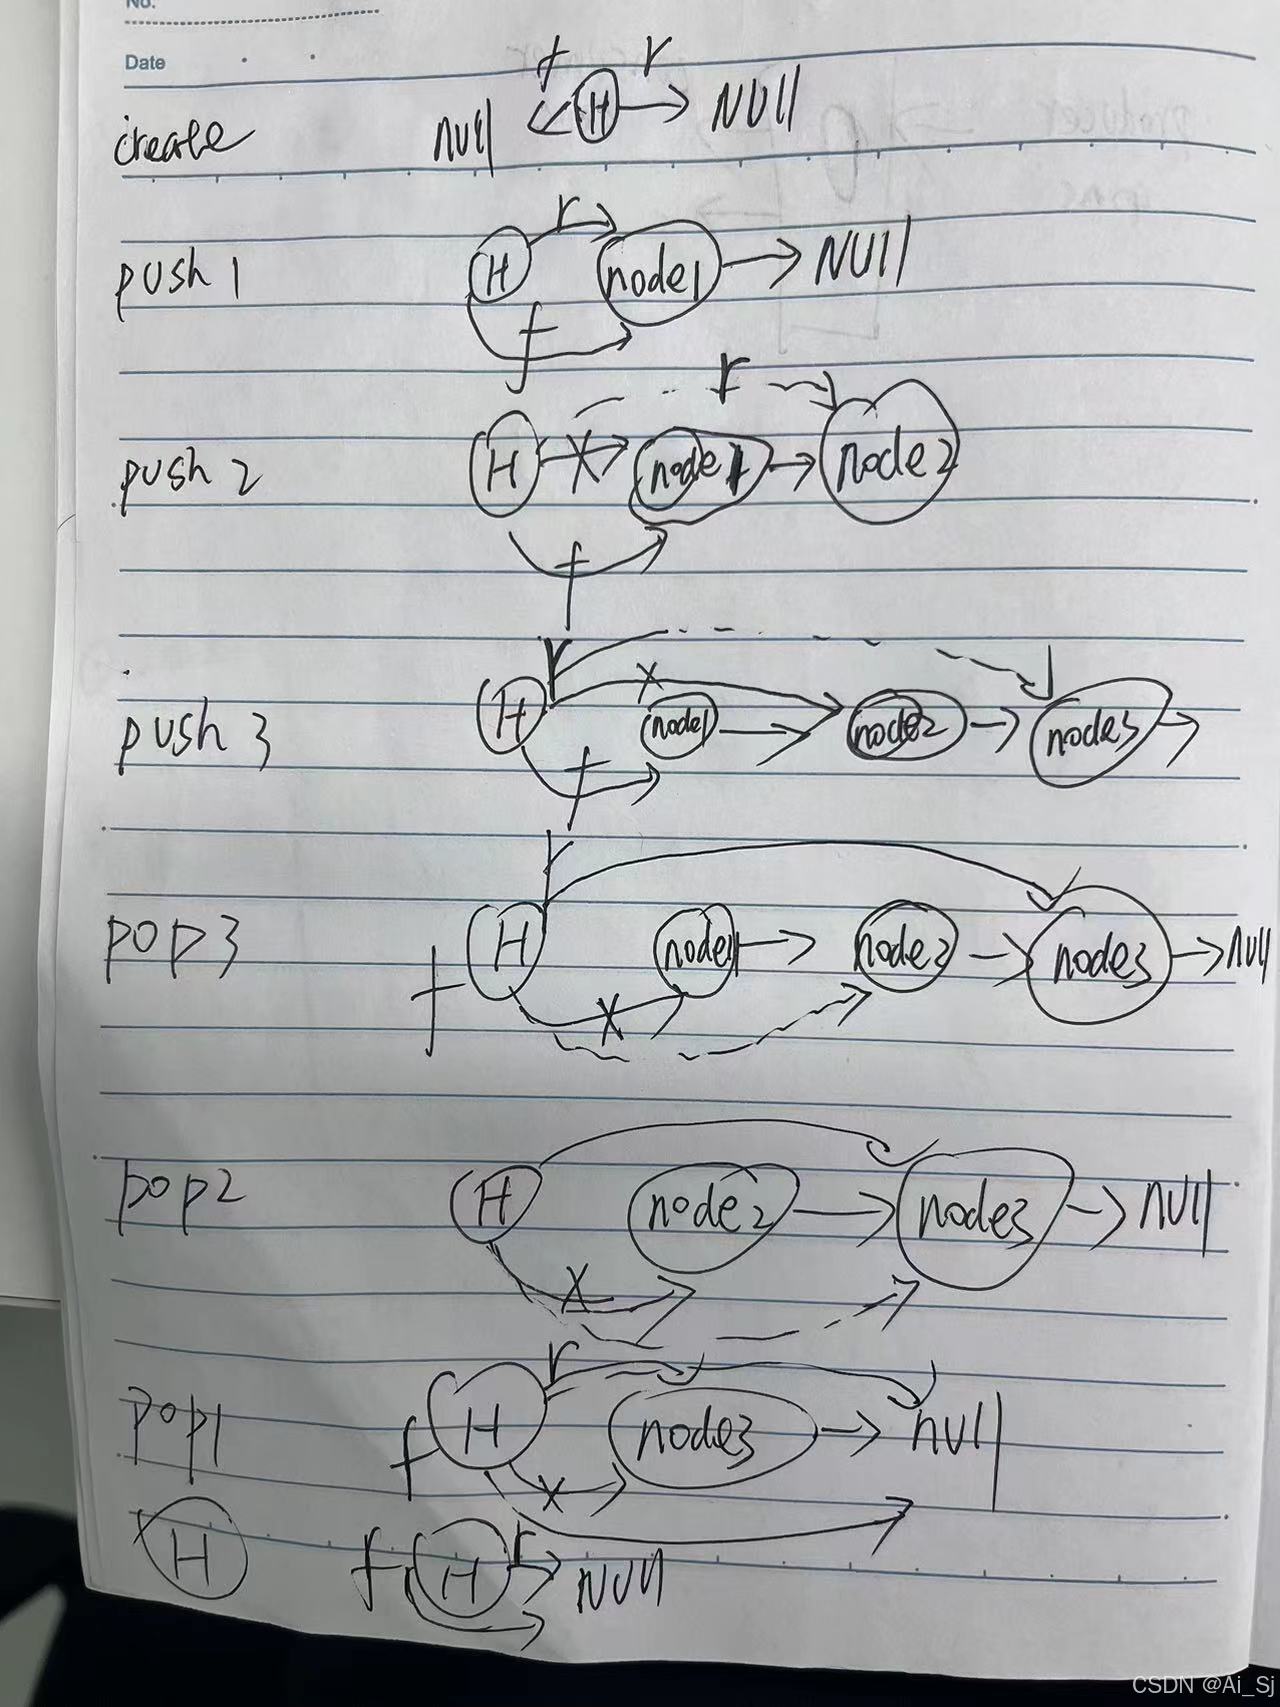 No.
Date
create null f H r NULL
push 1 H r node1 NULL
f
r
push 2 H X node1 node2
f
r X
push 3 H node1 node2 node3
f
r
pop3 H node1 node2 node3 null
f X
pop2 H node2 node3 null
X
r
pop1 f H node3 null
X
H f H r NULL
CSDN @Ai_Sj